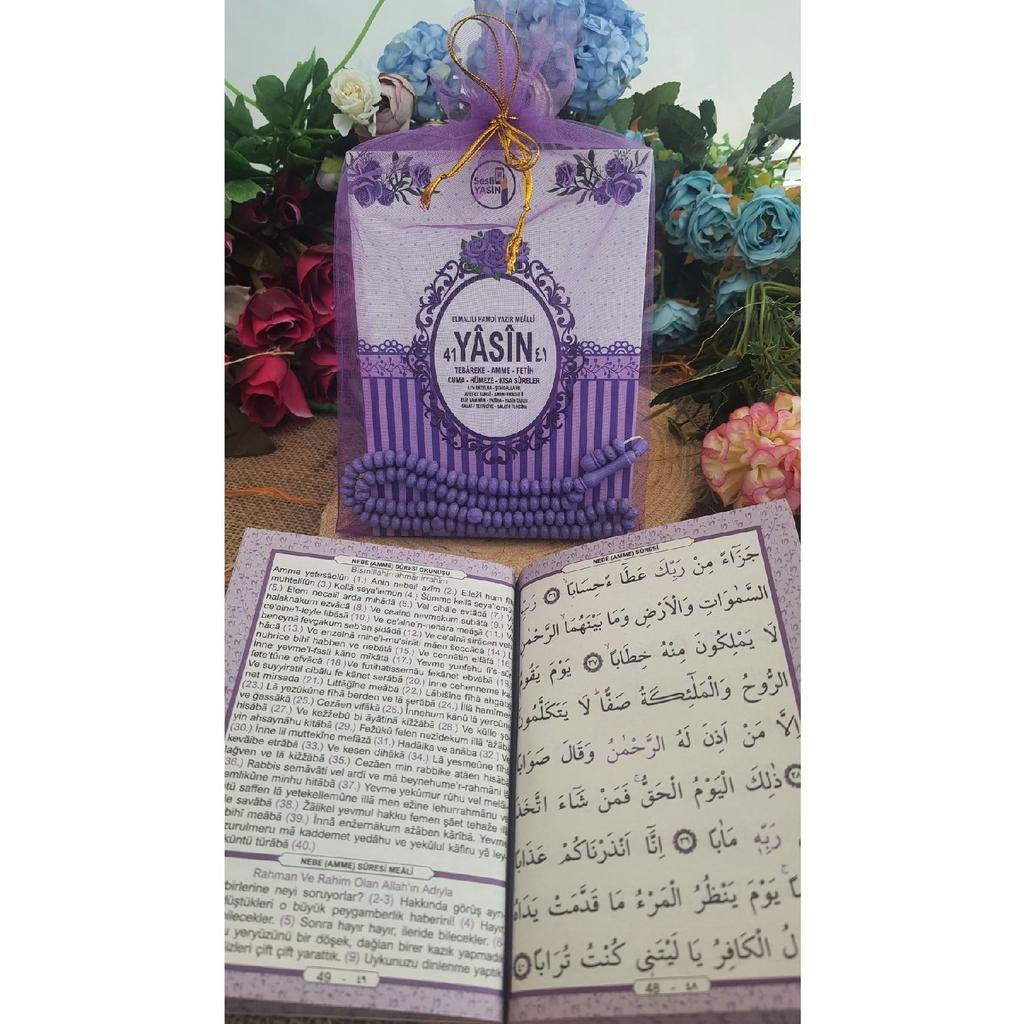 Sesli
YASİN
ELMALILI HAMDİ YAZIR MEÂLLİ
41 YÂSÎN ٤١
TEBÂREKE - AMME - FETİH
CUMA - HÜMEZE - KISA SÛRELER
NEBE (AMME) SÛRESİ OKUNUŞU
Bismillâhirrahmânirrahîm
Amme yetesâelûn (1.) Anin nebeil azîm (2.) Elležî hum fîhi
muhtelifûn (3.) Kellâ seya'lemûn (4.) Šümme kellâ seya'lemûn
(5.) Elem necalil arda mihâdâ (6.) Vel cibâle evtâdâ (7.)
halaknâkum ezvâcâ (8.) Ve cealnâ nevmekum subâtâ (9.)
ce'alne'l-leyle libâsâ (10.) Ve ce'alne'n-nehâra meâşâ (11.)
beneynâ fevgakum seb'an şidâdâ (12.) Ve ce'alnâ sirâcen
hâcâ (13.) Ve enzelnâ mine'l-mu'sirâti mâen seccâcâ (14.)
nuhrice bihî habben ve nebâtâ (15.) Ve cennâtin elfâfâ (16.)
İnne yevme'l-fasli kâne mîkâtâ (17.) Yevme yunfehu fi's-sûri
fete'tûne efvâcâ (18.) Ve futihatissemâu fekânet ebvâbâ (19.)
Ve suyyiratil cibâlu fe kânet serâbâ (20.) İnne cehenneme kâ
net mirsada (21.) Littâğîne meâba (22.) Lâbisîne fîhâ ahgâbâ
(23.) Lâ yezûkûne fîhâ berden ve lâ şerâbâ (24.) İllâ hamîmen
ve gassâkâ (25.) Cezâen vifâkâ (26.) İnnehum kânû lâ yercûne
hisâbâ (27.) Ve kežžebû bi âyâtinâ kižžâbâ (28.) Ve külle şey
yin ahsaynâhu kitâbâ (29.) Fežûkû felen nezîdekum illâ 'ažâbâ
(30.) İnne lil muttekîne mefâzâ (31.) Hadâika ve anâba (32.) Ve
kevâibe etrâbâ (33.) Ve kesen dihâkâ (34.) Lâ yesmeûne fîhâ
lağven ve lâ kižžâbâ (35.) Cezâen min rabbike atâen hisâbâ
(36.) Rabbis semâvâti vel ardi ve mâ beynehume'r-rahmâni lâ
emlikûne minhu hitâbâ (37.) Yevme yekûmur rûhu vel melâi
tü saffen lâ yetekellemûne illâ men ežine lehurrahmânu ve
le savâbâ (38.) Žâlikel yevmul hakku femen şâet tehaže ilâ
bihî meâbâ (39.) İnnâ enžernâkum ažâben kârîbâ. Yevme
zurulmeru mâ kaddemet yedâhu ve yekûlul kâfiru yâ ley
küntü türâbâ (40.)
NEBE (AMME) SÛRESİ MEÂLİ
Rahman Ve Rahim Olan Allah'ın Adıyla
birlerine neyi soruyorlar? (2-3) Hakkında görüş ayrı
düştükleri o büyük peygamberlik haberini! (4) Hayır
bilecekler. (5) Sonra hayır hayır, ileride bilecekler. (6
yeryüzünü bir döşek, dağları birer kazık yapmadık
izleri çift çift yarattık. (9) Uykunuzu dinlenme yaptık
49 - ٤٩
NEBE (AMME) SÛRESİ
جَزَٓاءً مِنْ رَبِّكَ عَطَٓاءً حِسَابًاۙ ٣٦ رَبِّ
السَّمٰوَاتِ وَالْاَرْضِ وَمَا بَيْنَهُمَا الرَّحْمٰنِ
لَا يَمْلِكُونَ مِنْهُ خِطَابًاۚ ٣٧ يَوْمَ يَقُومُ
الرُّوحُ وَالْمَلٰٓئِكَةُ صَفًّاۜ لَا يَتَكَلَّمُونَ
اِلَّا مَنْ اَذِنَ لَهُ الرَّحْمٰنُ وَقَالَ صَوَابًا
٣٨ ذٰلِكَ الْيَوْمُ الْحَقُّۚ فَمَنْ شَٓاءَ اتَّخَذَ
رَبِّهٖ مَاٰبًا ٣٩ اِنَّٓا اَنْذَرْنَاكُمْ عَذَابًا
يَوْمَ يَنْظُرُ الْمَرْءُ مَا قَدَّمَتْ يَدَاهُ
لُ الْكَافِرُ يَا لَيْتَنٖي كُنْتُ تُرَابًا ٤٠
48 - ٤٨